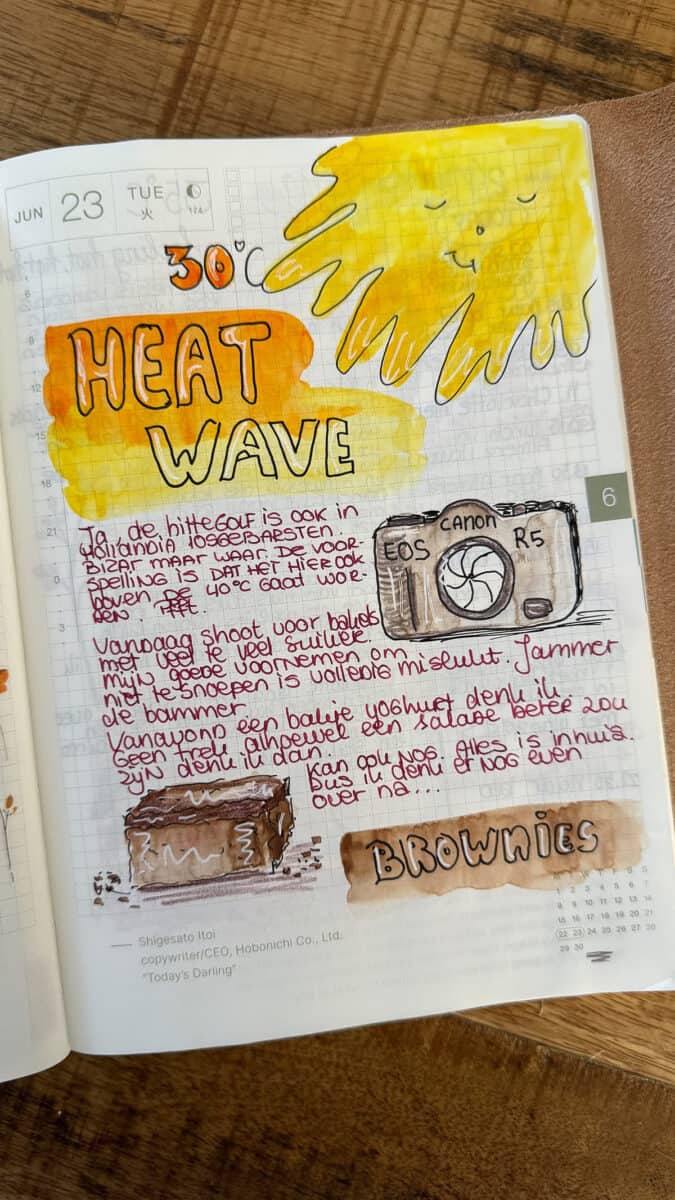 JUN 23 TUE
火
30°C
HEAT
WAVE
6
8
9
12
15
18
21
0
3
6
Ja, de hitteGOLF is ook in
Hollandia losgebarsten.
Bizar maar waar. De voor-
spelling is dat het hier ook
boven de 40°C gaat wor-
den.
CANON
EOS R5
Vandaag shoot voor
met veel te veel suiker.
mijn goede voornemen om
niet te snoepen is volledig mislukt. Jammer
de bammer.
Vanavond een bakje yoghurt denk ik.
Geen trek alhoewel een salade beter zou
zijn denk ik dan.
Kan ook nog. Alles is in huis.
Dus ik denk er nog even
over na...
BROWNIES
Shigesato Itoi
copywriter/CEO, Hobonichi Co., Ltd.
"Today's Darling"
M T W T F S S
1 2 3 4 5 6 7
8 9 10 11 12 13 14
15 16 17 18 19 20 21
22 23 24 25 26 27 28
29 30